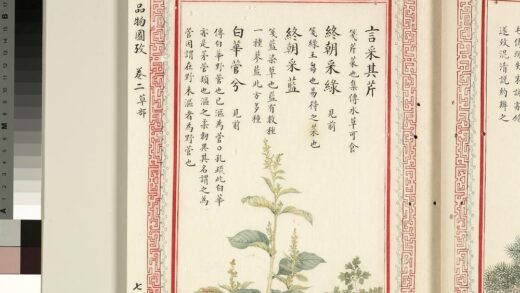 言采其芹
箋芹菜也集傳水草可食
終朝采綠 見前
箋綠王芻也易得之菜也
終朝采藍
箋藍染草也藍有數種
一種蓼藍北方多種
白華菅兮 見前
傳白華野菅也已漚為菅○孔疏此白華
亦是茅菅類也漚之柔韌異其名謂之為
菅因謂在野未漚者為野菅也
品物圖攷 卷二 草部 七